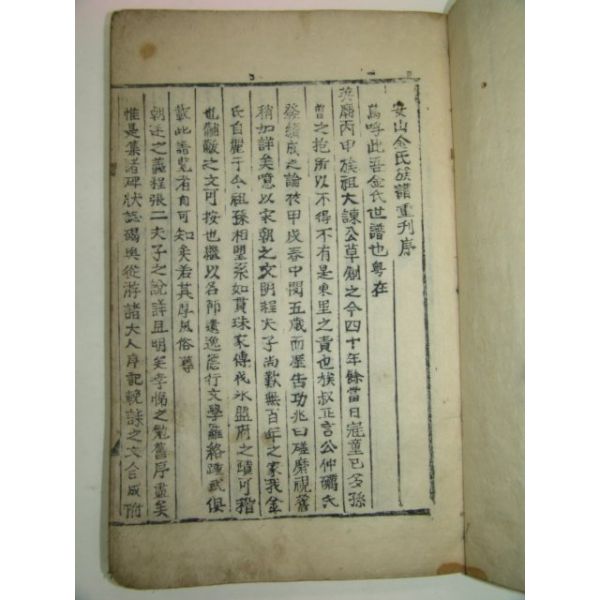 安山金氏族譜重刊序
嗚呼此吾金氏世譜也粤在
英廟丙甲族祖大諫公草刱之今四十年餘當日冠童已多孫
曾之抱所以不得不有是東里之責也族叔正言公仲氏
發續成之論於甲戌春中閱五歲而歷告功兆曰磋縻視舊
稍加詳矣噫以宋朝之文明程夫子尚歎無百年之家我金
氏自麗于今祖孫相望系如貫珠家傳代氷盟府之蹟可稽
也黼黻之文可按也繼以名節遺逸蔭行文學聯絡踵武俱
載此譜覧者自可知矣若其厚風俗尊
朝廷之義程張二夫子之說詳且明矣孝悌之勉舊序盡矣
惟是集諸碑狀誌碣與從游諸大人序記輓誄之文合成附